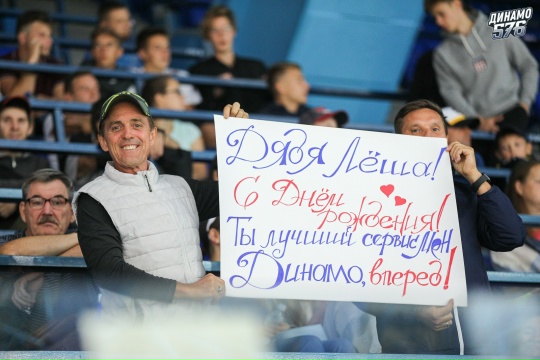 ДИНАМО
576
Дядя Лёша!
С Днём
рождения!
Ты лучший сервисмен
Динамо, вперёд!